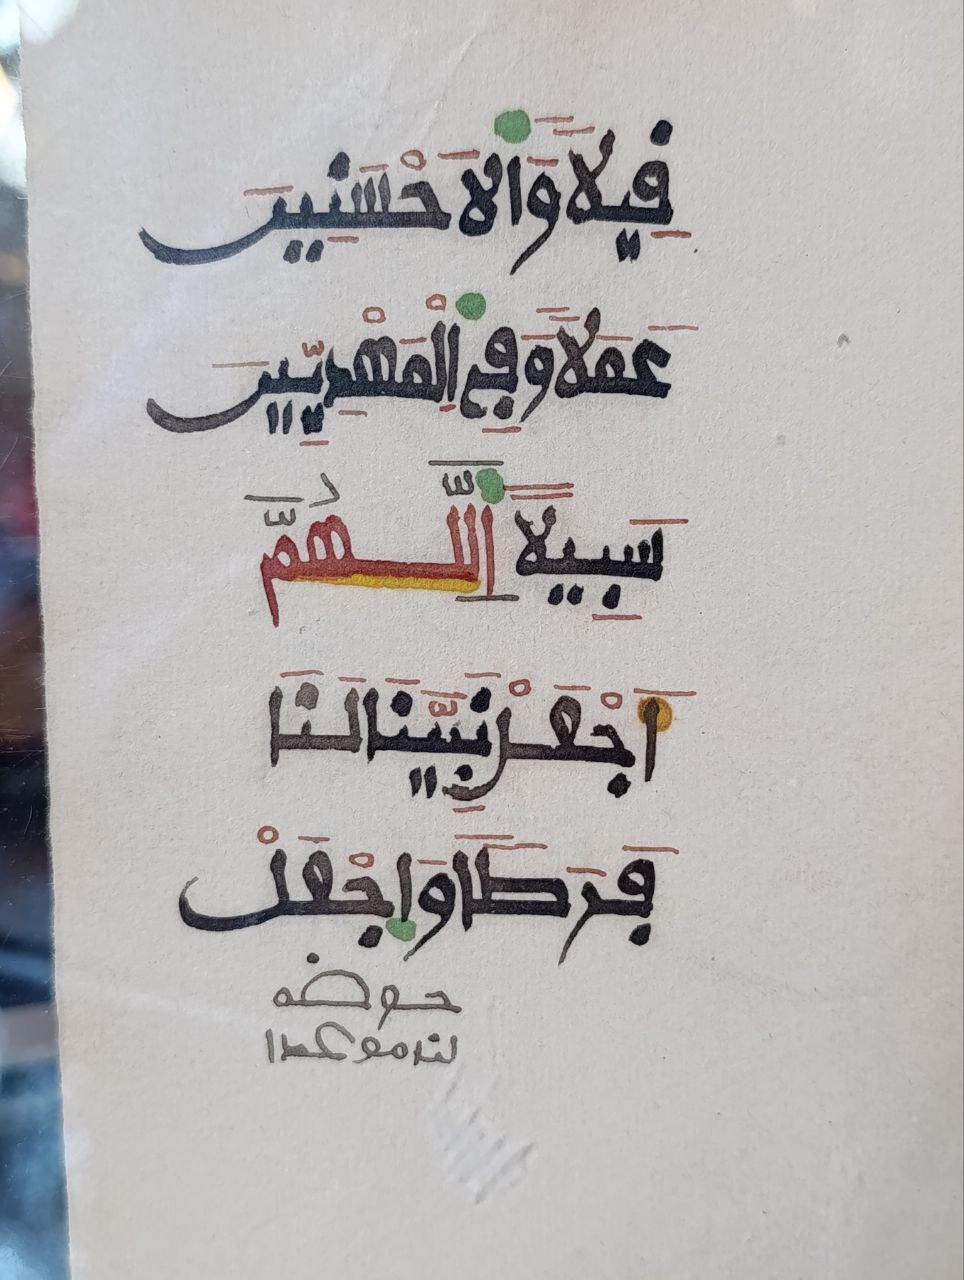 قِيلاً وَالاَحْسَنِينَ
عَمَلاً وَفِي الْمَهْدِيِّينَ
سَبِيلاً اَللَّهُمَّ
اَجْعَلْ نَبِيَّنَا لَنَا
فَرَطاً وَاجْعَلْ
حوضه
لنا موعدا